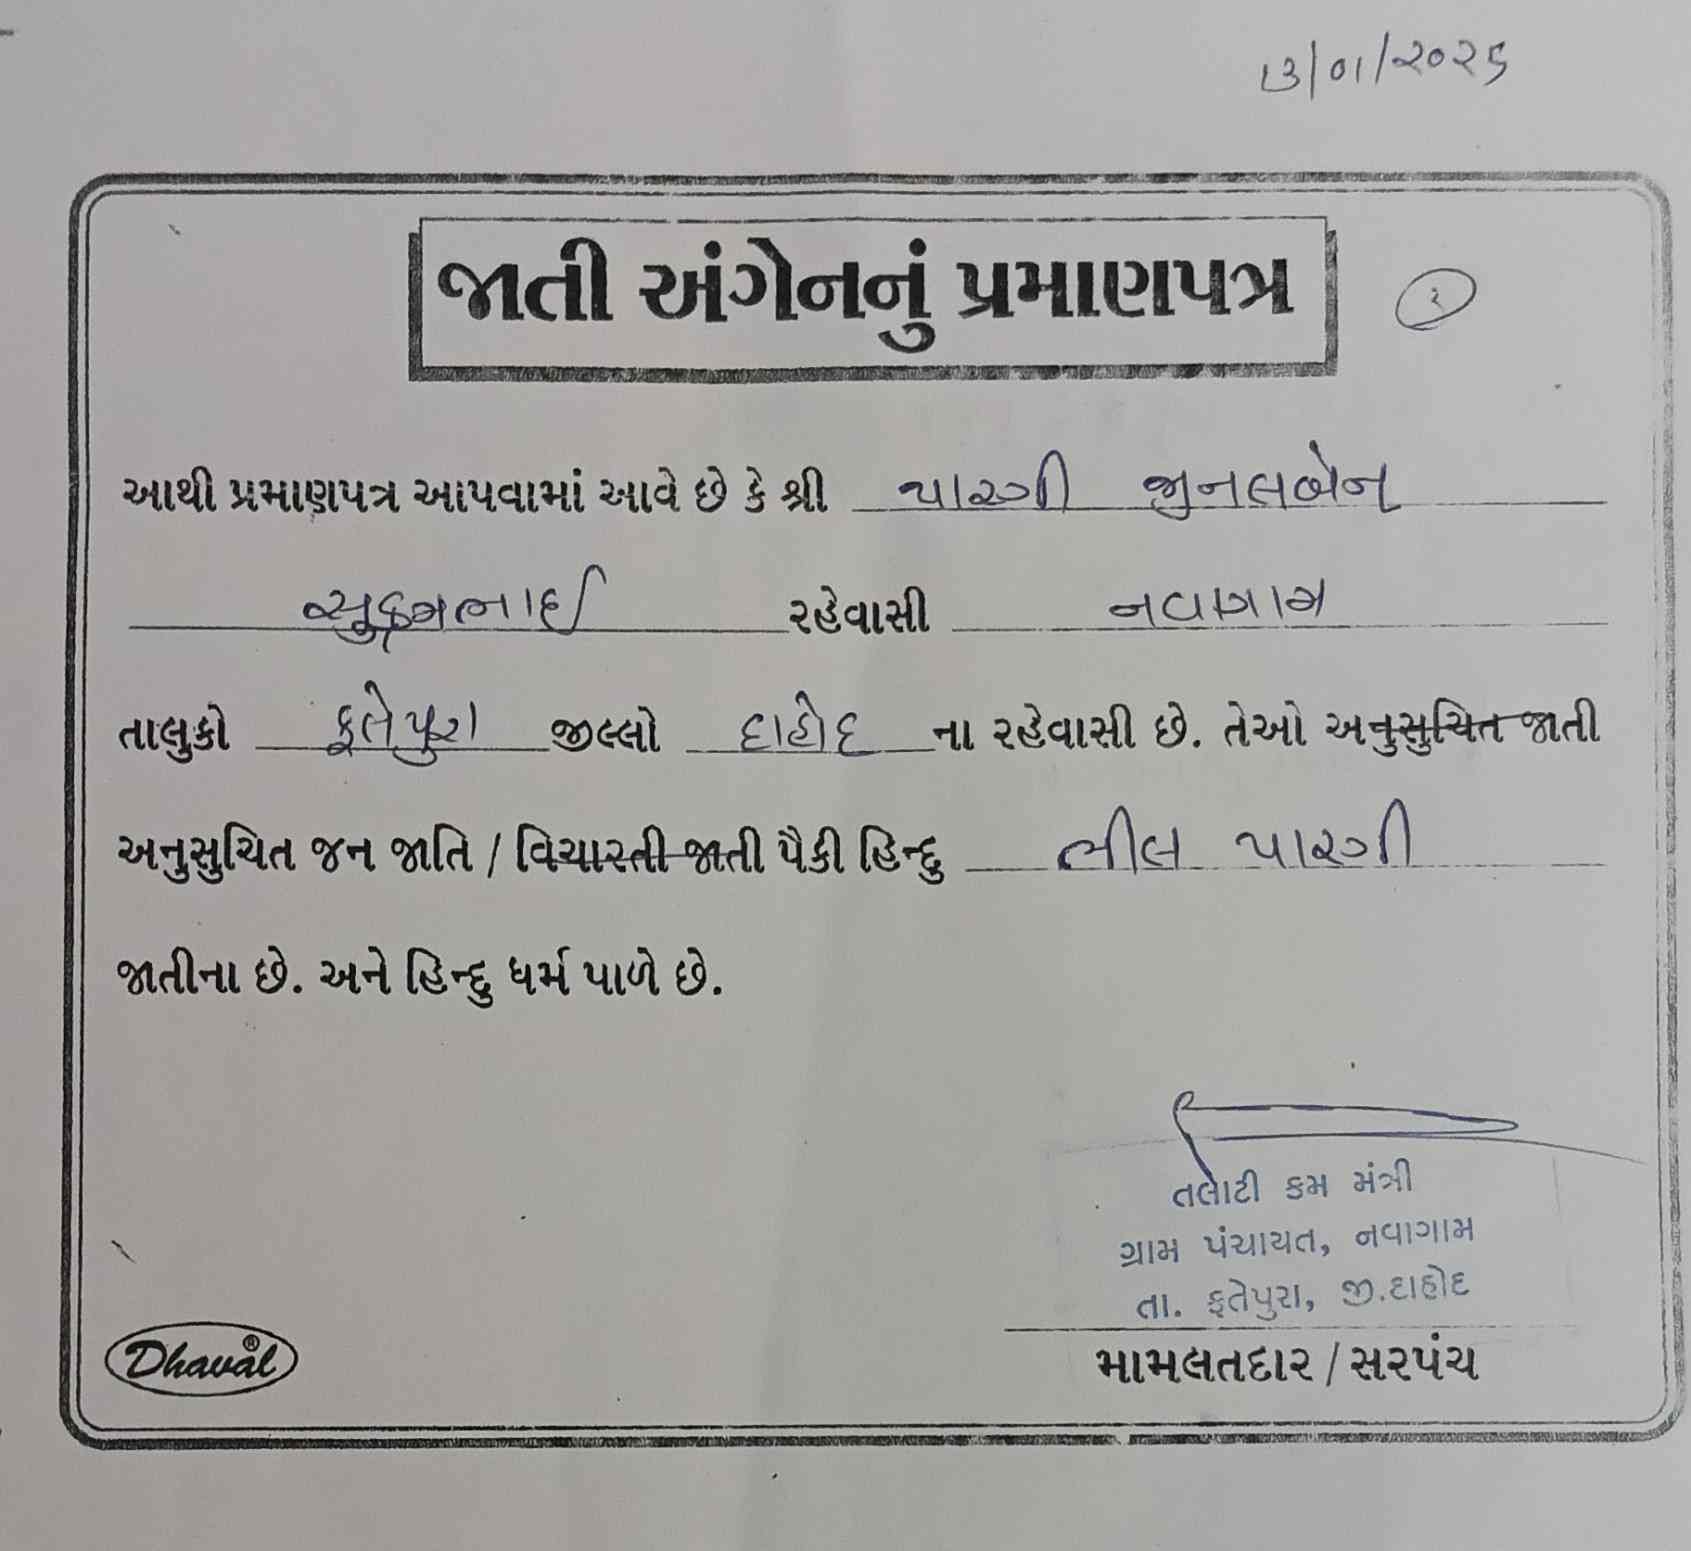 ૧૩/૦૧/૨૦૨૬
જાતી અંગેનનું પ્રમાણપત્ર
૨
આથી પ્રમાણપત્ર આપવામાં આવે છે કે શ્રી પારગી જીનલબેન
રહેવાસી નવાગામ
તાલુકો ફતેપુરા જીલ્લો દાહોદ ના રહેવાસી છે. તેઓ અનુસુચિત જાતી
અનુસુચિત જન જાતિ / વિચારતી જાતી પૈકી હિન્દુ ભીલ પારગી
જાતીના છે. અને હિન્દુ ધર્મ પાળે છે.
તલાટી કમ મંત્રી
ગ્રામ પંચાયત, નવાગામ
તા. ફતેપુરા, જી.દાહોદ
Dhaval®
મામલતદાર / સરપંચ